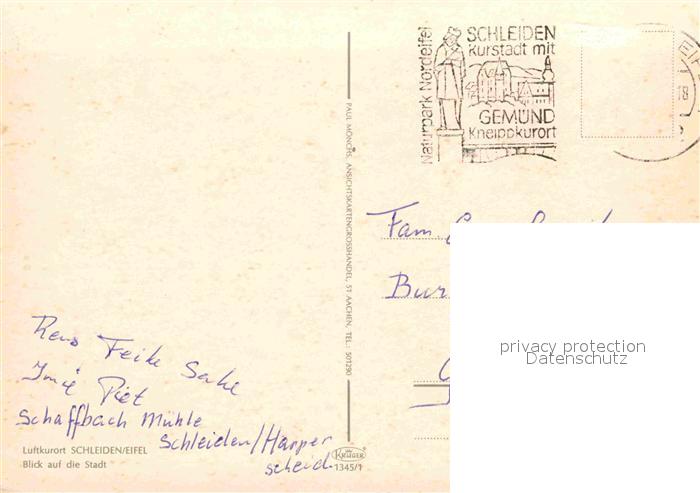 Naturpark Nordeifel
SCHLEIDEN
Kurstadt mit
GEMÜND
Kneippkurort
18
PAUL MÖNCHS, ANSICHTSKARTENGROSSHANDEL, 51 AACHEN, TEL. 501290
Fam.
Bur
privacy protection
Datenschutz
Rens Feike Sake
Piet
Schaffbach Mühle
Schleiden/Harper
scheid
Luftkurort SCHLEIDEN/EIFEL
Blick auf die Stadt
KRÜGER
1345/1